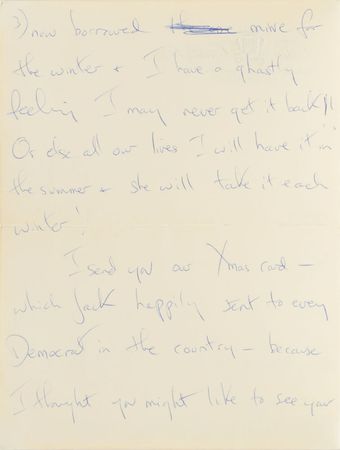 3) now borrowed mine for
the winter + I have a ghastly
feeling I may never get it back!!
Or else all our lives I will have it in
the summer + she will take it each
winter!
I send you our Xmas card —
which Jack happily sent to every
Democrat in the country — because
I thought you might like to see your